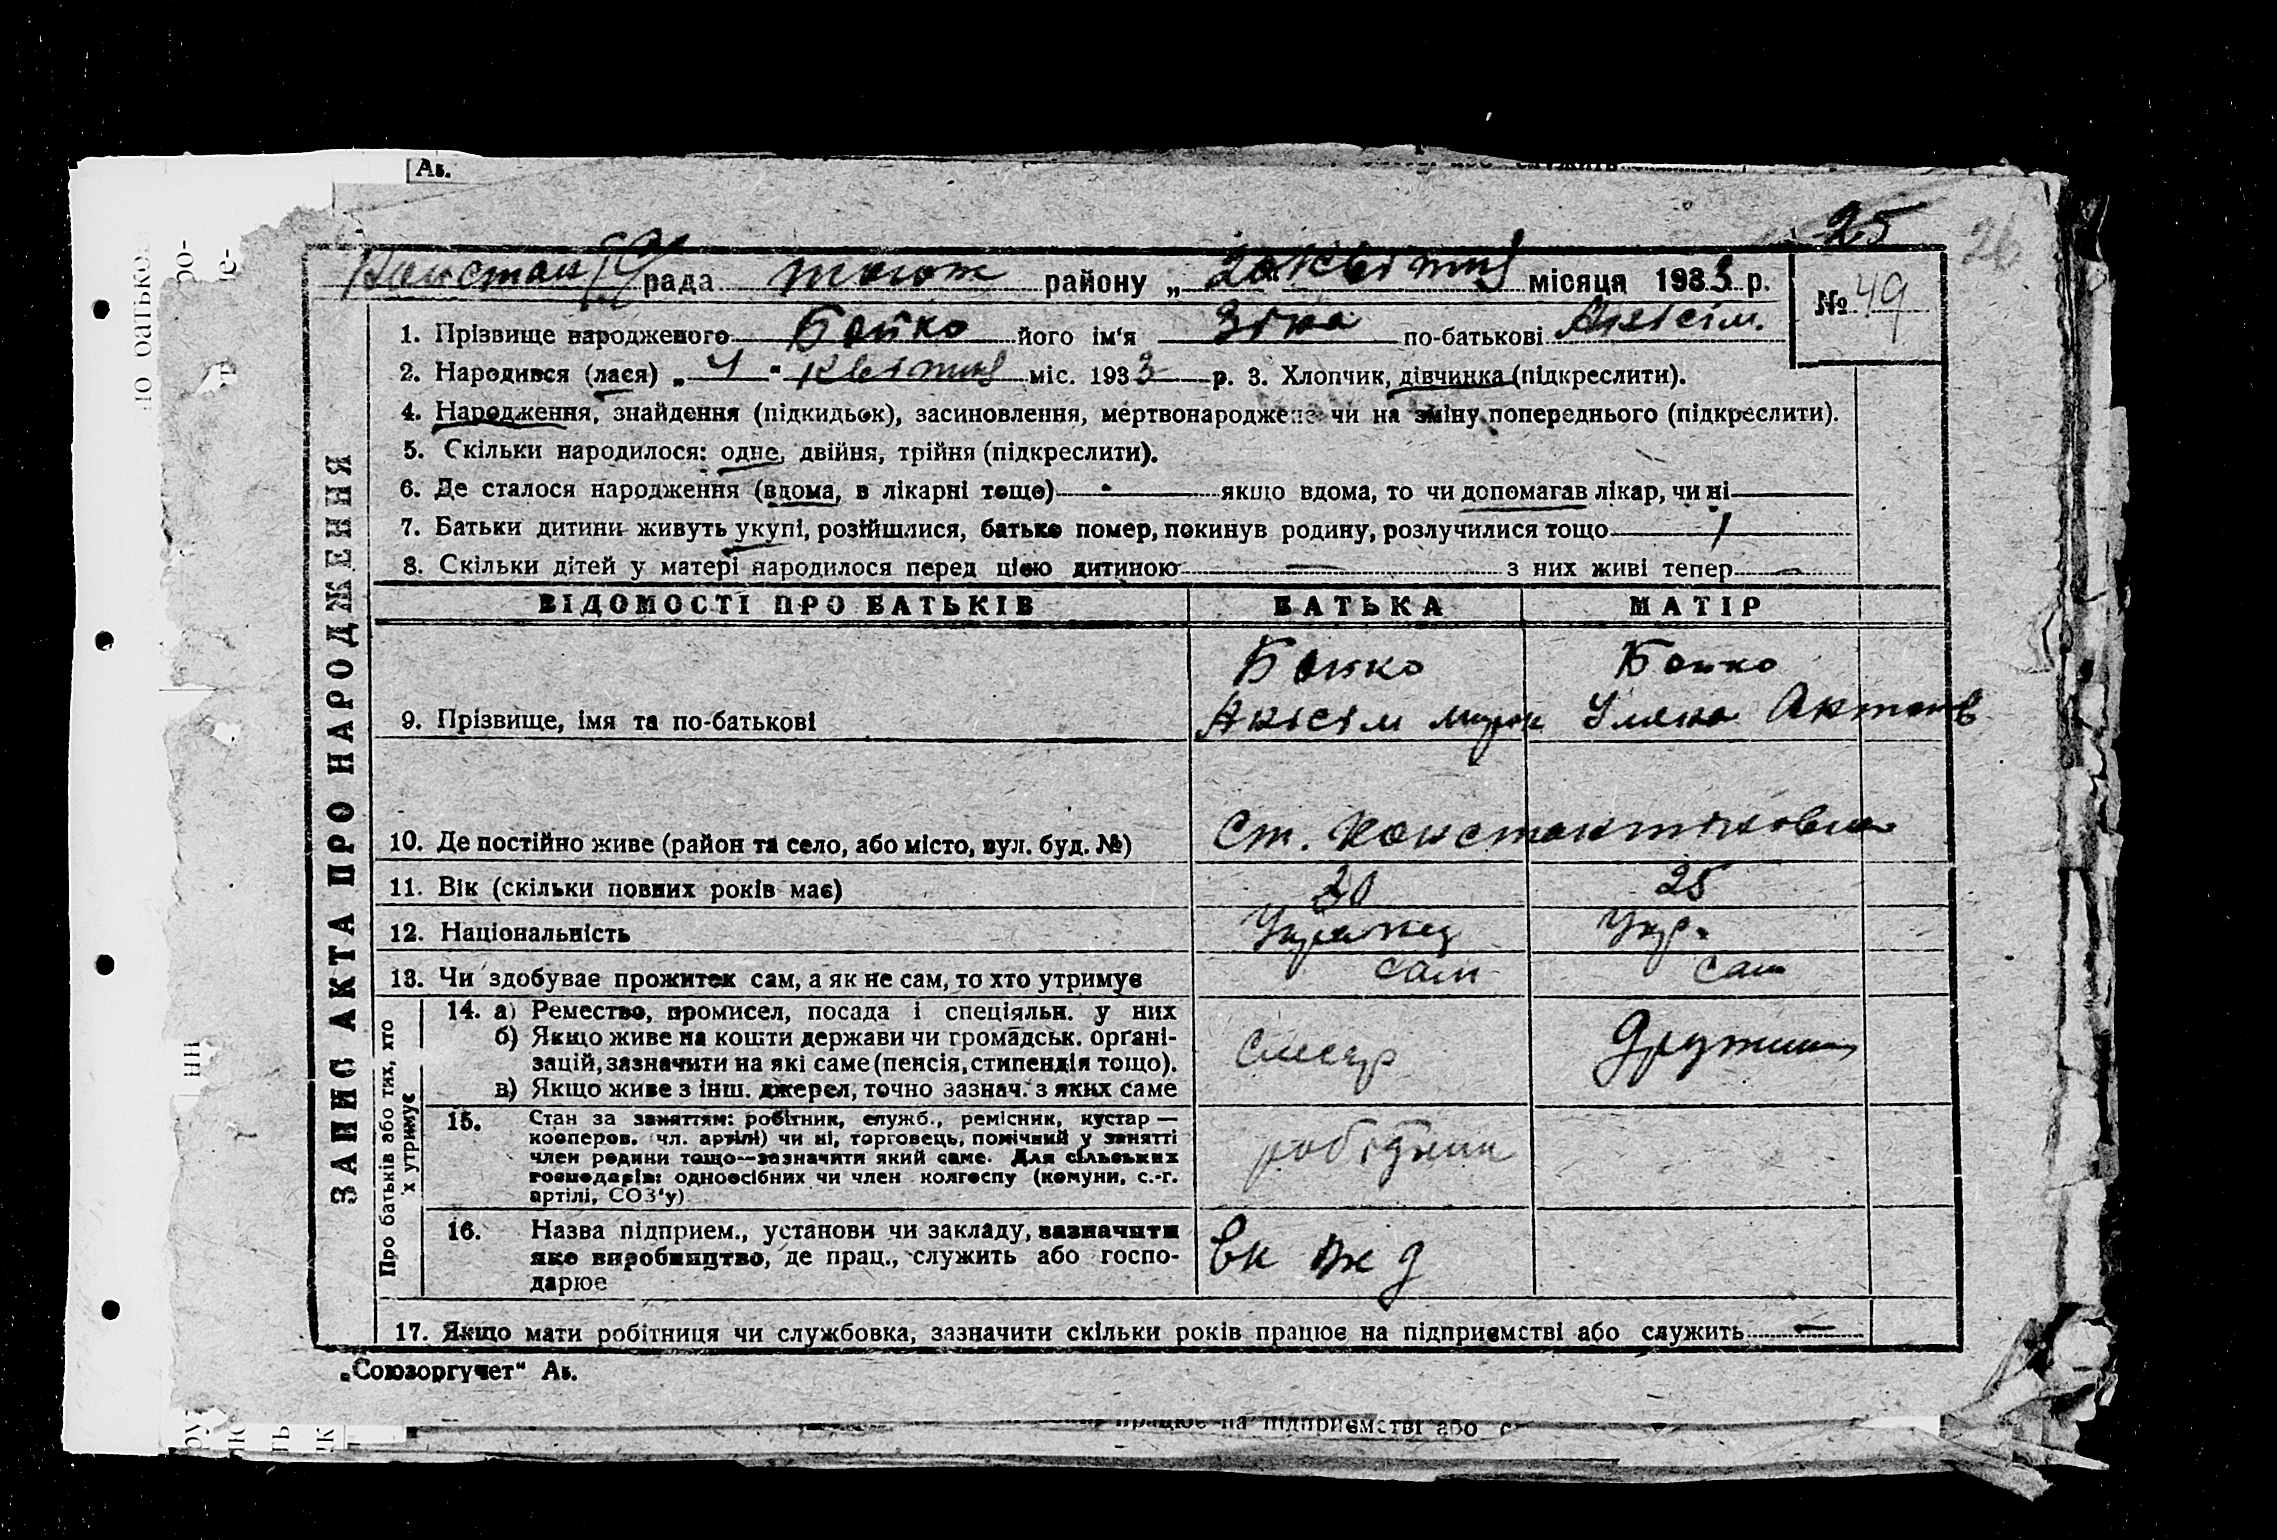 Ав.
25
26
Констан рада район району „20 квітня місяця 1933 р.
№ 49
1. Прізвище народженого Бойко його ім'я Зіна по-батькові Анісім.
2. Народився (лася) „4" квітня міс. 1933 р. 3. Хлопчик, дівчинка (підкреслити).
4. Народження, знайдення (підкидьок), засиновлення, мертвонароджене чи на зміну попереднього (підкреслити).
5. Скільки народилося: одне, двійня, трійня (підкреслити).
6. Де сталося народження (вдома, в лікарні тощо) якщо вдома, то чи допомагав лікар, чи ні
7. Батьки дитини живуть укупі, розійшлися, батько помер, покинув родину, розлучилися тощо
8. Скільки дітей у матері народилося перед цією дитиною — з них живі тепер —
ЗАПИС АКТА ПРО НАРОДЖЕННЯ
ВІДОМОСТІ ПРО БАТЬКІВ БАТЬКА МАТІР
Бойко Бойко
9. Прізвище, імя та по-батькові Анісім Уляна
10. Де постійно живе (район та село, або місто, вул. буд. №) Ст. Константіновка
11. Вік (скільки повних років має) 25
12. Національність Українец Укр.
13. Чи здобуває прожиток сам, а як не сам, то хто утримує сам сам
Про батьків або тих, хто
х утримує
14. а) Ремество, промисел, посада і спеціяльн. у них
б) Якщо живе на кошти держави чи громадськ. органі-
зацій, зазначити на які саме (пенсія, стипендія тощо).
в) Якщо живе з інш. джерел, точно зазнач. з яких саме
слесар Дружина
15. Стан за заняттям: робітник, служб., ремісник, кустар —
кооперов. чл. артілі) чи ні, торговець, помічний у занятті
член родини тощо—зазначити який саме. Для сільських
господарів: одноосібних чи член колгоспу (комуни, с.-г.
артілі, СОЗ'у)
робітник
16. Назва підприєм., установи чи закладу, зазначити
яке виробництво, де прац., служить або госпо-
дарює
вк жд
17. Якщо мати робітниця чи службовка, зазначити скільки років працює на підприємстві або служить —
„Союзоргучет" Ав.
працює на підприємстві або